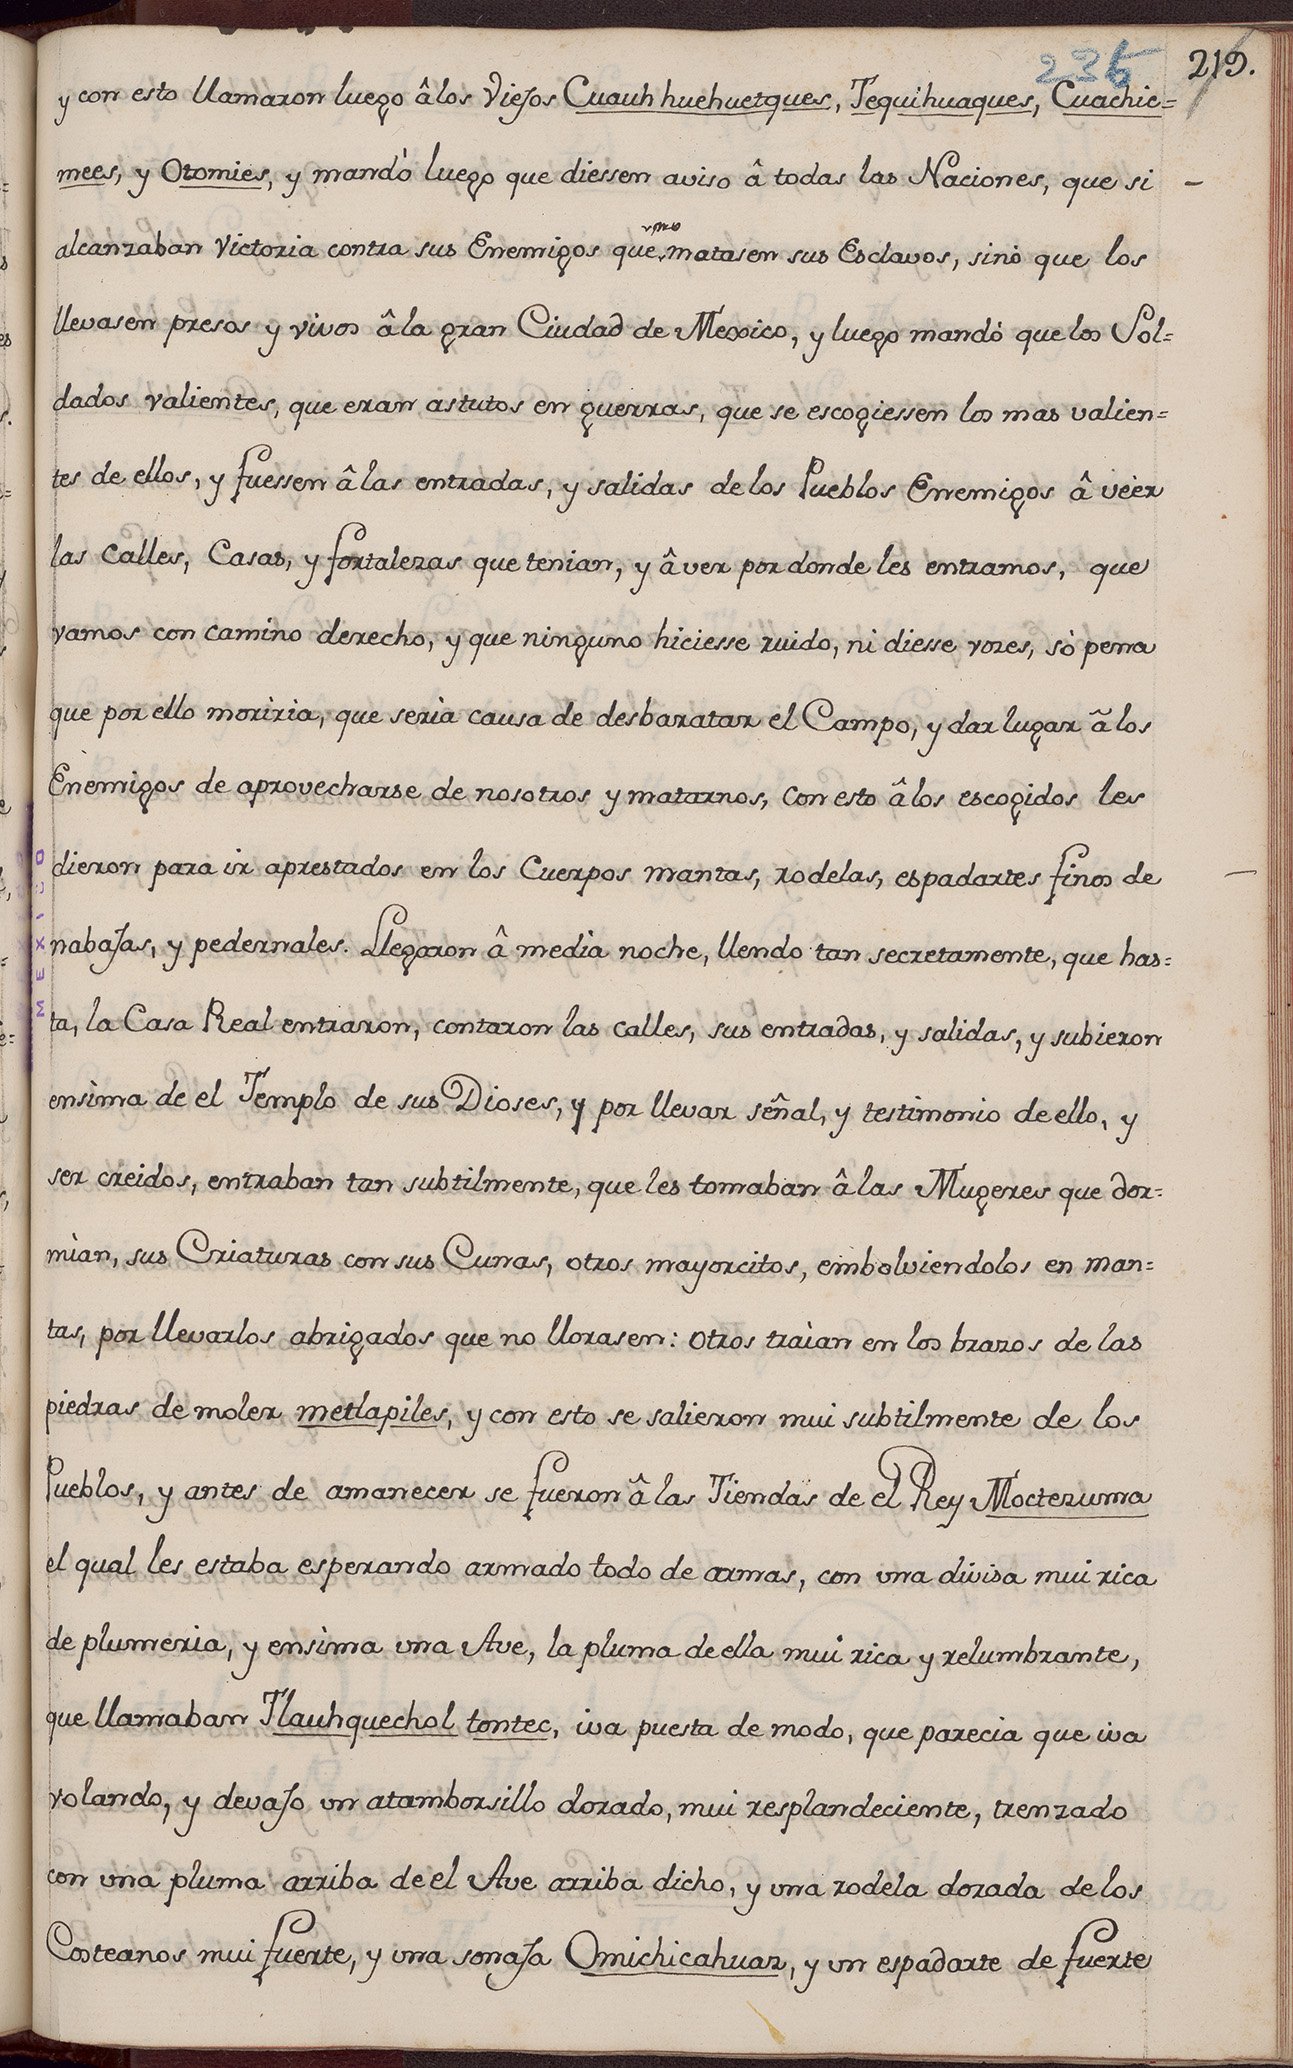 235 219.
y con esto llamaron luego â los Viejos Cuauhhuehuetques, Tequihuaques, Cuachic=
mees, y Otomies, y mandò luego que diessen aviso â todas las Naciones, que si
alcanzaban Victoria contra sus Enemigos que no matasen sus Esclavos, sinò que los
llevasen presos y vivos â la gran Ciudad de Mexico, y luego mandò que los Sol=
dados valientes, que eran astutos en guerras, que se escogiessen los mas valien=
tes de ellos, y fuessen â las entradas, y salidas de los Pueblos Enemigos â vèer
las Calles, Casas, y fortalezas que tenian, y â ver por donde les entramos, que
vamos con camino derecho, y que ninguno hiciesse ruido, ni diesse vozes, sò pena
que por ello moriria, que serìa causa de desbaratar el Campo, y dar lugar â los
Enemigos de aprovecharse de nosotros y matarnos, con esto â los escogidos les
dieron para ir aprestados en los Cuerpos mantas, rodelas, espadartes finos de
nabajas, y pedernales. Llegaron â media noche, llendo tan secretamente, que has=
ta, la Casa Real entraron, contaron las calles, sus entradas, y salidas, y subieron
ensima de el Templo de sus Dioses, y por llevar señal, y testimonio de ello, y
ser creidos, entraban tan subtilmente, que les tomaban â las Mugeres que dor=
mìan, sus Criaturas con sus Cunas, otros mayorcitos, embolviendolos en man=
tas, por llevarlos abrigados que no llorasen: otros traìan en los brazos de las
piedras de moler metlapiles, y con esto se salieron mui subtilmente de los
Pueblos, y antes de amanecer se fueron â las Tiendas de el Rey Moctezuma
el qual les estaba esperando armado todo de armas, con una divisa mui rica
de plumeria, y ensima una Ave, la pluma de ella mui rica y relumbrante,
que llamaban Tlauhquechol tontec, iva puesta de modo, que parecia que iva
volando, y devajo un atamborsillo dorado, mui resplandeciente, trenzado
con una pluma arriba de el Ave arriba dicho, y una rodela dorada de los
Costeanos mui fuerte, y una sonaja Omichicahuaz, y un espadarte de fuerte
MEXICO